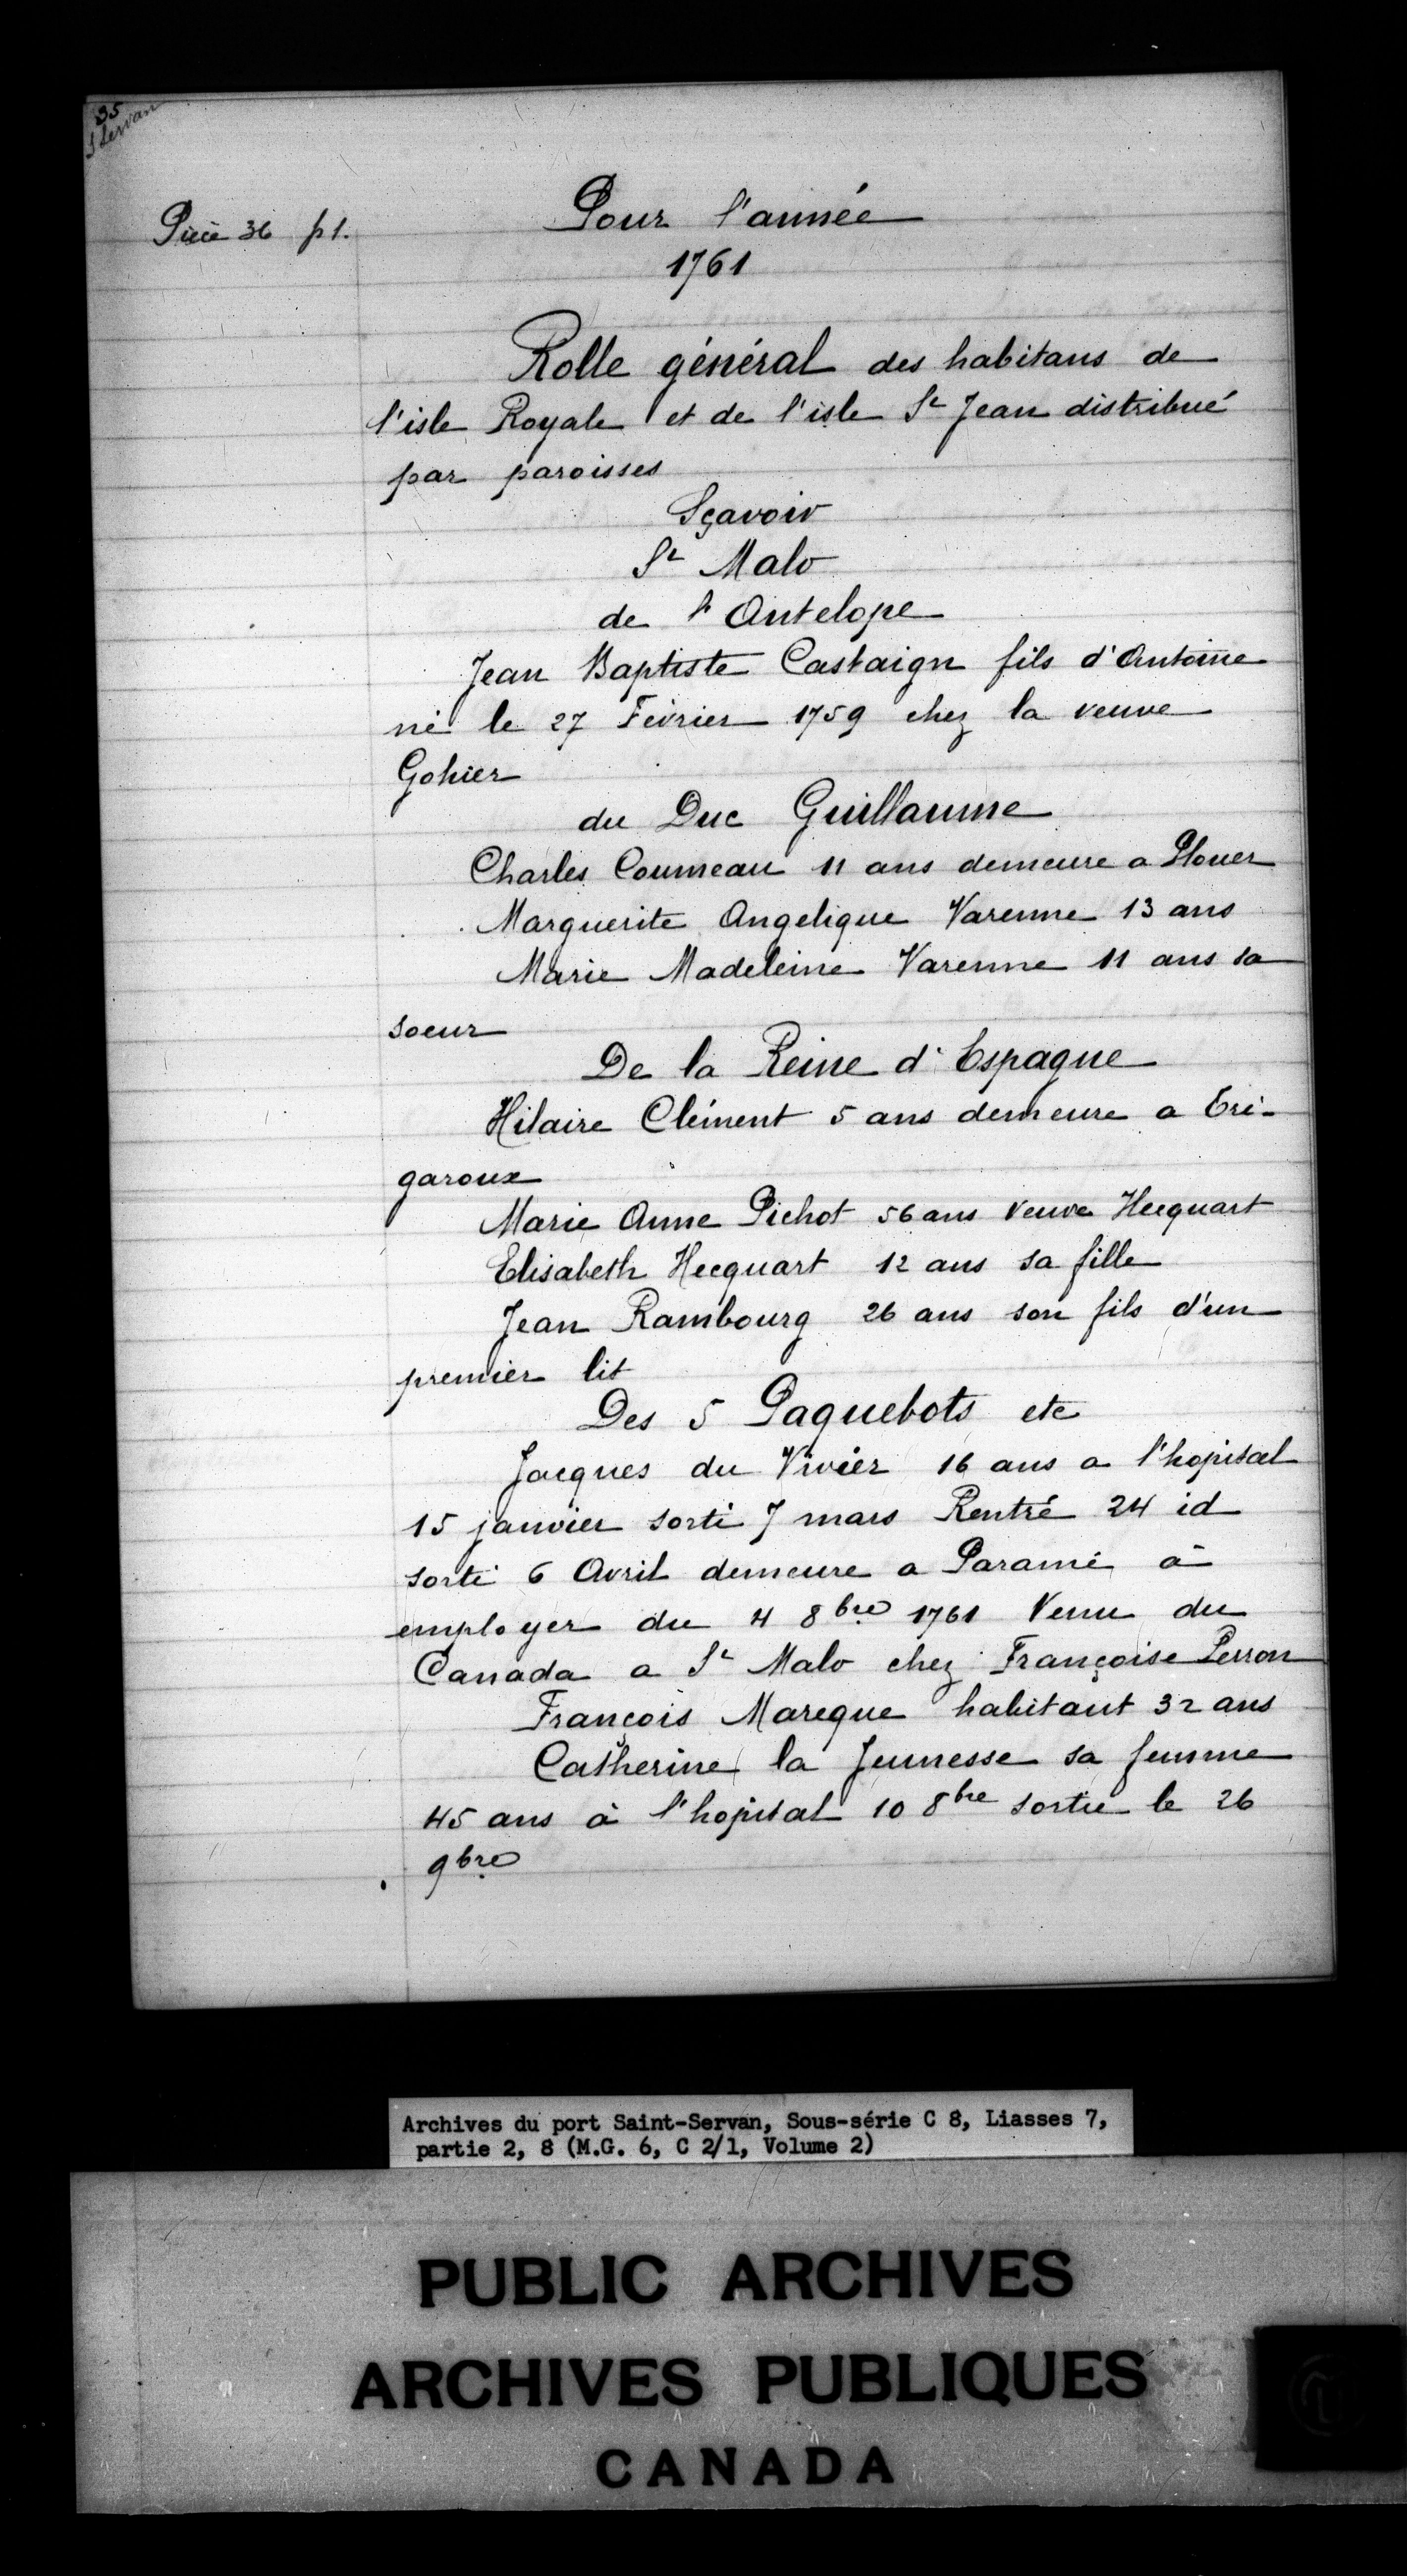 35
S Servan
Pièce 36 p 1.
Pour l'année
1761
Rolle général des habitans de
l'isle Royale et de l'isle St Jean distribué
par paroisses
Sçavoir
St Malo
de l'Antelope
Jean Baptiste Castaign fils d'Antoine
né le 27 Février 1759 chez la veuve
Gohier
du Duc Guillaume
Charles Coumeau 11 ans demeure a Plouer
Marguerite Angelique Varenne 13 ans
Marie Madeleine Varenne 11 ans sa
soeur
De la Reine d'Espagne
Hilaire Clément 5 ans demeure a Tri-
garoux
Marie Anne Pichot 56 ans veuve Hecquart
Elisabeth Hecquart 12 ans sa fille
Jean Rambourg 26 ans son fils d'un
premier lit
Des 5 Paquebots etc
Jacques du Vivier 16 ans a l'hopital
15 janvier sorti 7 mars Rentré 24 id
sorti 6 Avril demeure a Paramé à
employer du 4 8bre 1761 Venu du
Canada a St Malo chez Françoise Perron
François Mareque habitant 32 ans
Catherine la Jeunesse sa femme
45 ans à l'hopital 10 8bre sortie le 26
9bre
Archives du port Saint-Servan, Sous-série C 8, Liasses 7,
partie 2, 8 (M.G. 6, C 2/1, Volume 2)
PUBLIC ARCHIVES
ARCHIVES PUBLIQUES
CANADA